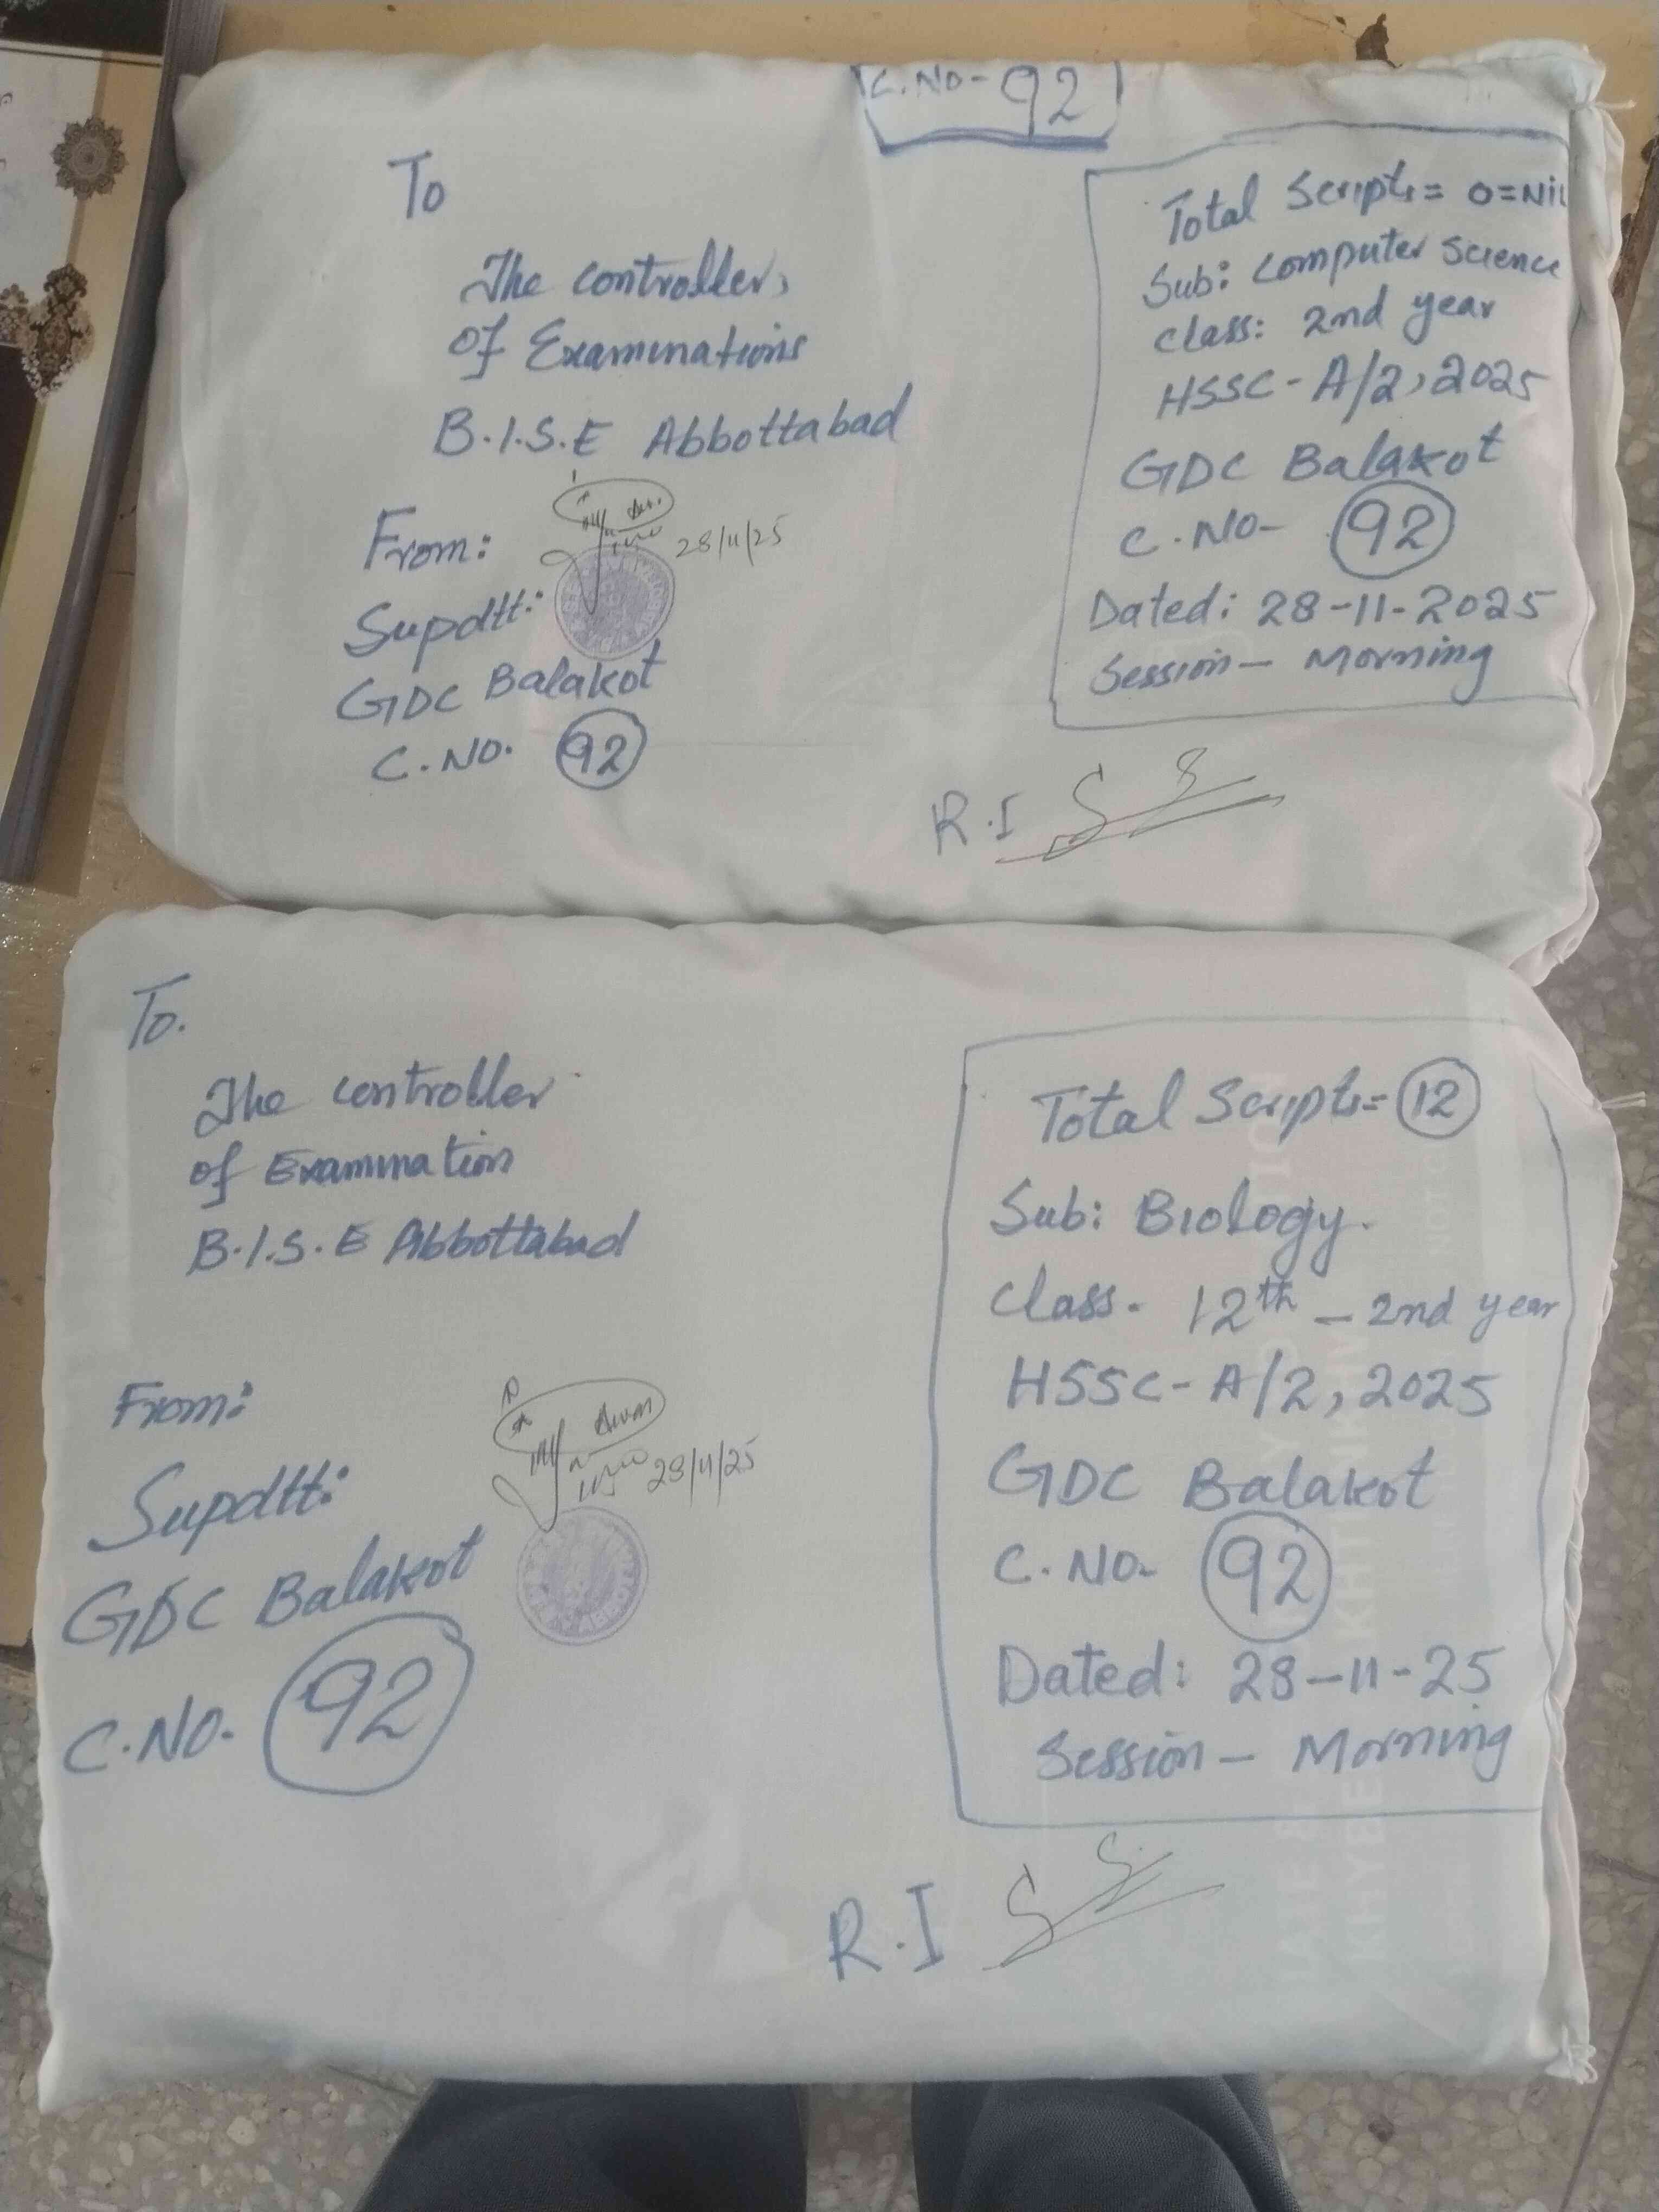 C.NO- 92
To
The controller,
of Examinations
B.I.S.E Abbottabad
From:
28/11/25
Supdtt:
GDC Balakot
C.NO. 92
Total Scripts= 0=Nil
Sub: Computer Science
Class: 2nd year
HSSC-A/2, 2025
GDC Balakot
C.NO- 92
Dated: 28-11-2025
Session- Morning
R.I
To.
The controller
of Examination
B.I.S.E Abbottabad
From:
28/11/25
Supdtt:
GDC Balakot
C.NO. 92
Total Scripts= 12
Sub: Biology.
Class- 12th - 2nd year
HSSC-A/2, 2025
GDC Balakot
C.NO- 92
Dated: 28-11-25
Session- Morning
R.I